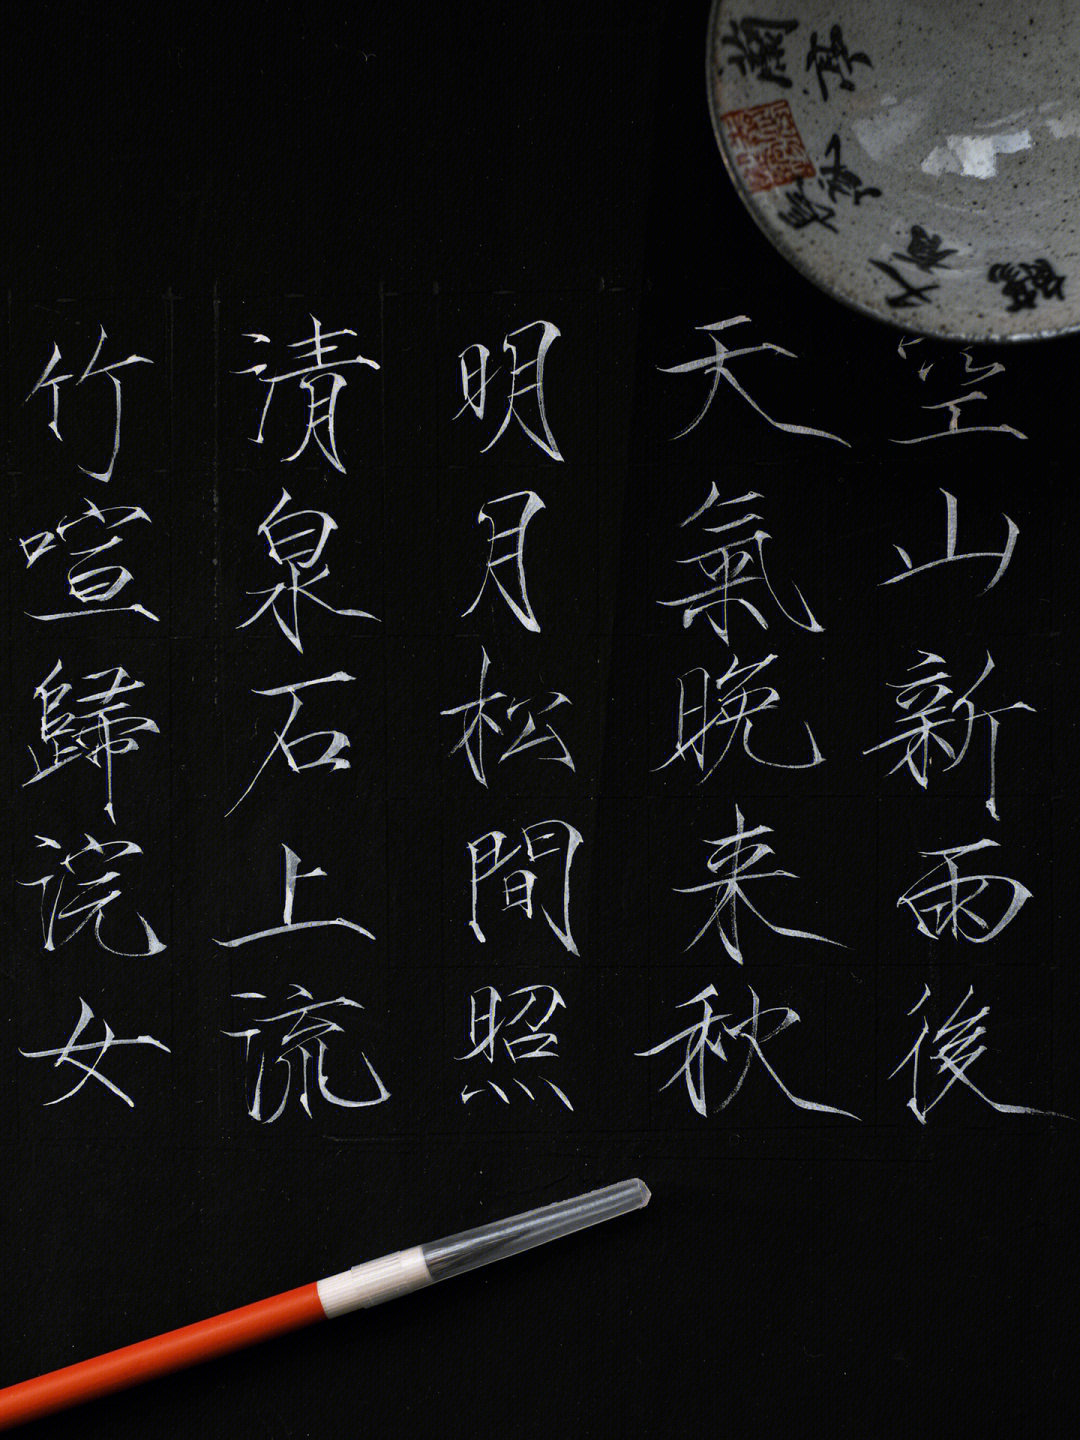 空山新雨後
天氣晚来秋
明月松間照
清泉石上流
竹喧歸浣女
蘭亭